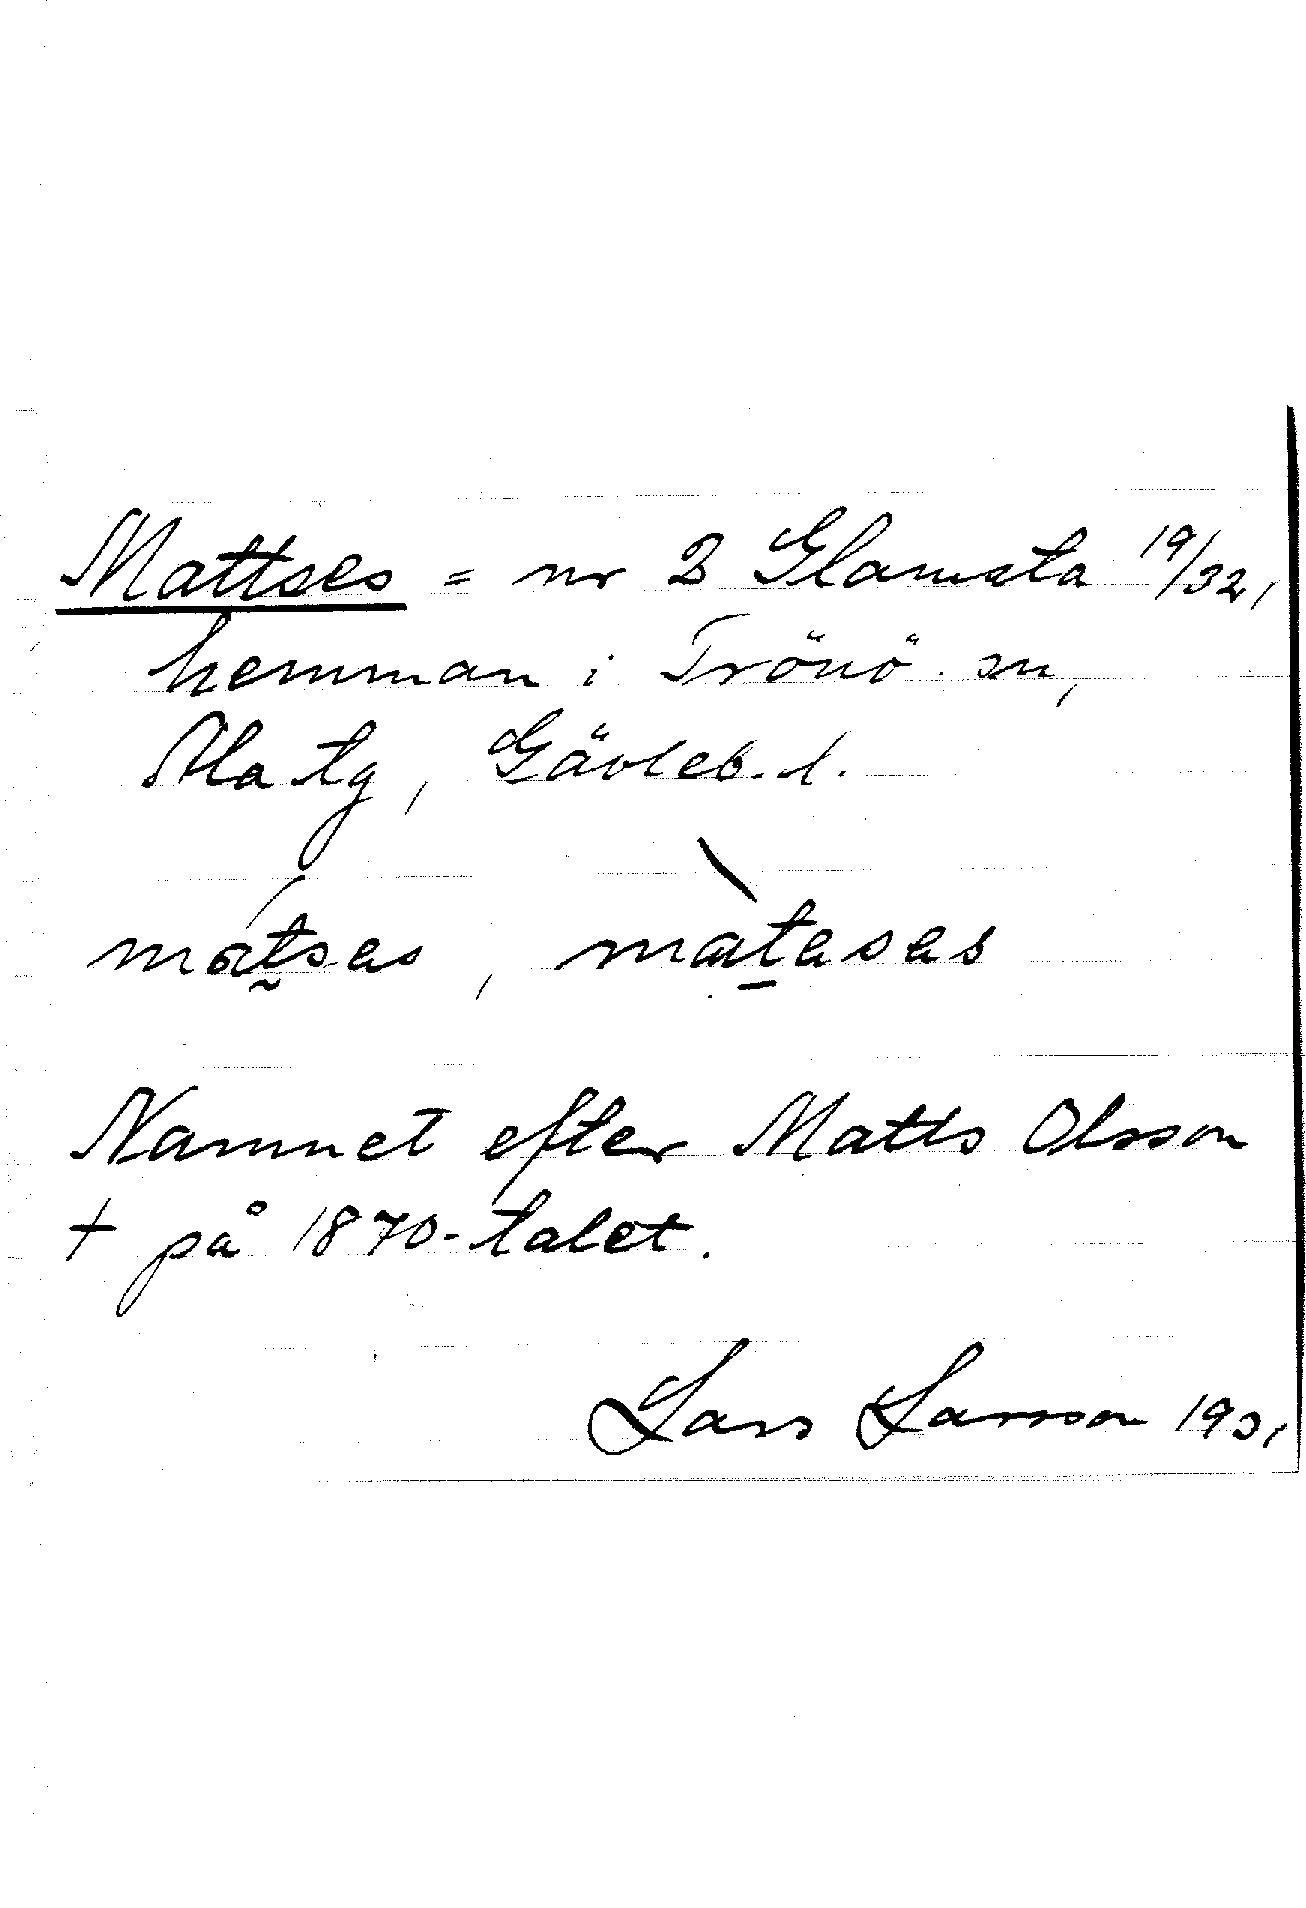 Mattses = nr 2 Glamsta 19/32,
hemman i Trönö sn,
Ala tg, Gävleb. l.
matsas, matasas
Namnet efter Matts Olsson
† på 1870-talet.
Lars Larsson 193